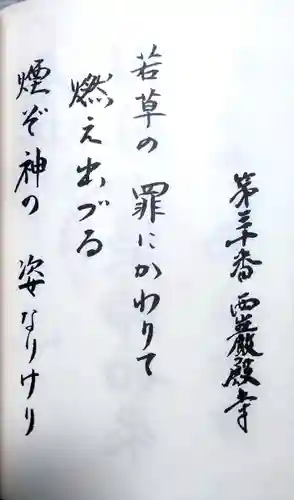 第三十番 西巌殿寺
若草の 罪にかわりて
燃え出づる
煙ぞ神の 姿なりけり